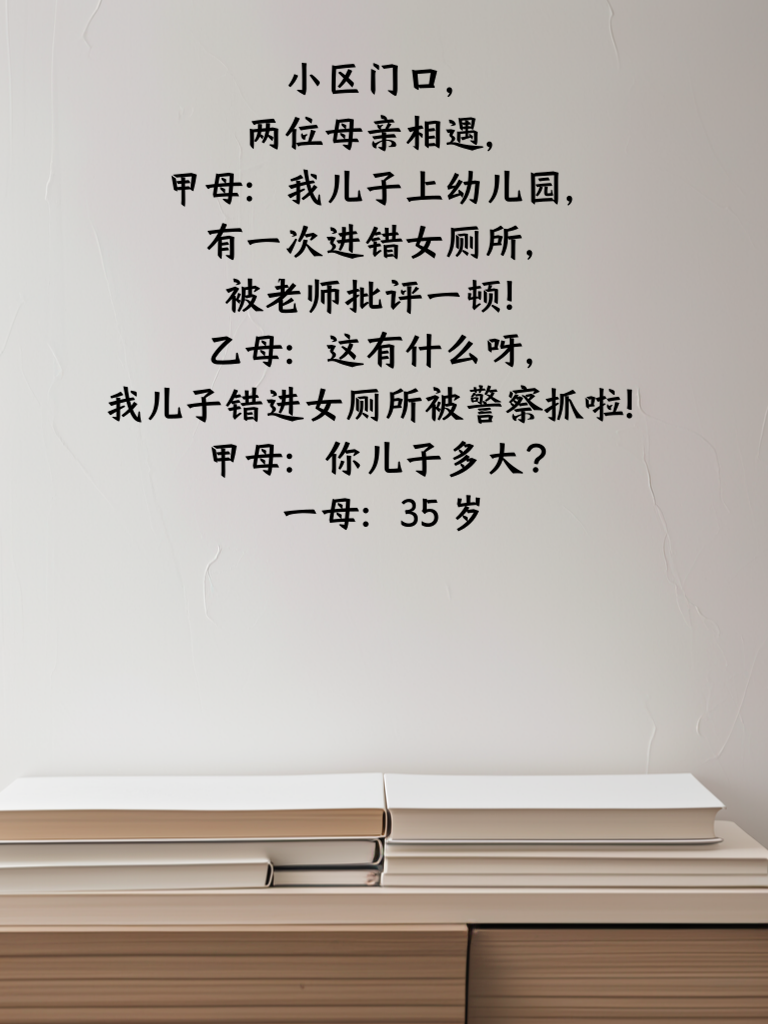 小区门口，
两位母亲相遇，
甲母：我儿子上幼儿园，
有一次进错女厕所，
被老师批评一顿！
乙母：这有什么呀，
我儿子错进女厕所被警察抓啦！
甲母：你儿子多大？
一母：35 岁